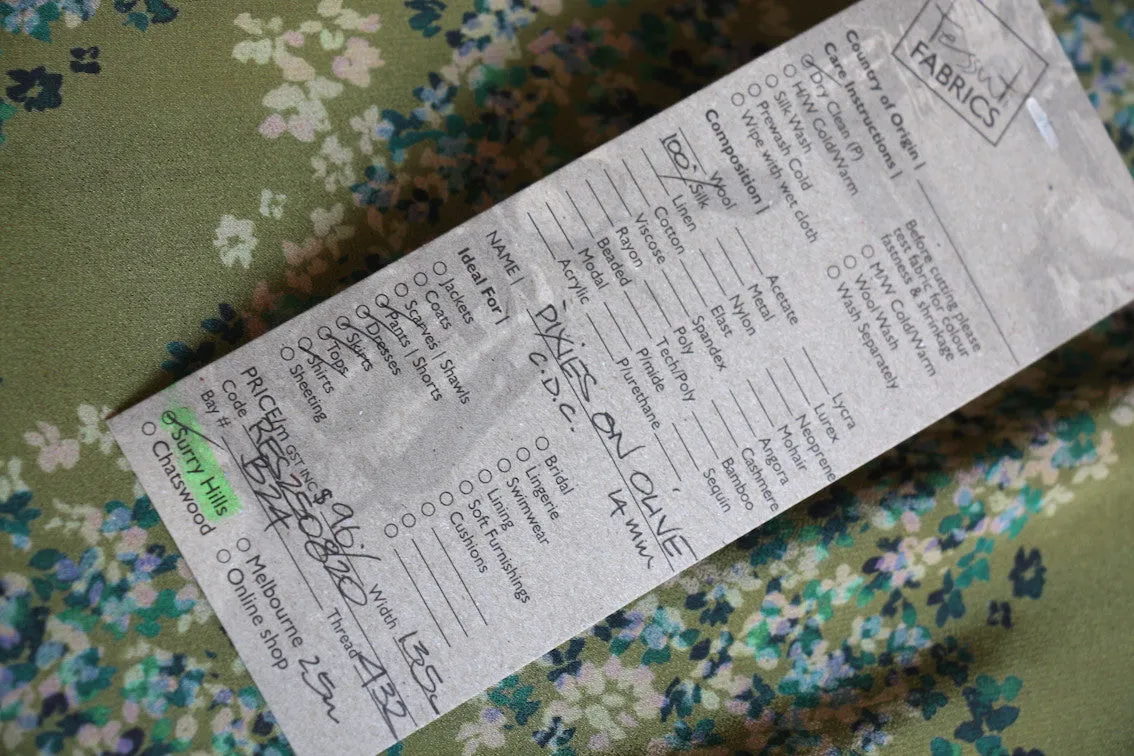 Tessuti
FABRICS
Country of Origin |
Care Instructions |
Dry Clean (P)
H/W Cold/Warm
Silk Wash
Prewash Cold
Wipe with wet cloth
Before cutting please
test fabric for colour
fastness & shrinkage
M/W Cold/Warm
Wool Wash
Wash Separately
Composition |
Wool
100% Silk
Linen
Cotton
Viscose
Rayon
Beaded
Modal
Acrylic
Acetate
Metal
Nylon
Elast
Spandex
Poly
Tech/Poly
P/mide
P/urethane
Lycra
Lurex
Neoprene
Mohair
Angora
Cashmere
Bamboo
Sequin
NAME | PIXIES ON OLIVE
C.D.C. 14mm
Ideal For |
Jackets
Coats
Scarves | Shawls
Pants | Shorts
Dresses
Skirts
Tops
Shirts
Sheeting
Bridal
Lingerie
Swimwear
Lining
Soft Furnishings
Cushions
PRICE/m GST INC $96/ Width 135c
Code RES250820 Thread 432
Bay # B24
Surry Hills
Chatswood
Melbourne
Online shop
25m